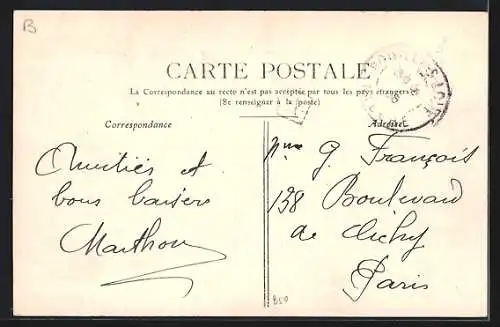 B
CARTE POSTALE
La Correspondance au recto n'est pas acceptée par tous les pays étrangers
(Se renseigner à la poste)
Correspondance
Adresse
Amitiés et
bons baisers
Marthon
Mme G. François
138 Boulevard
de Clichy
Paris